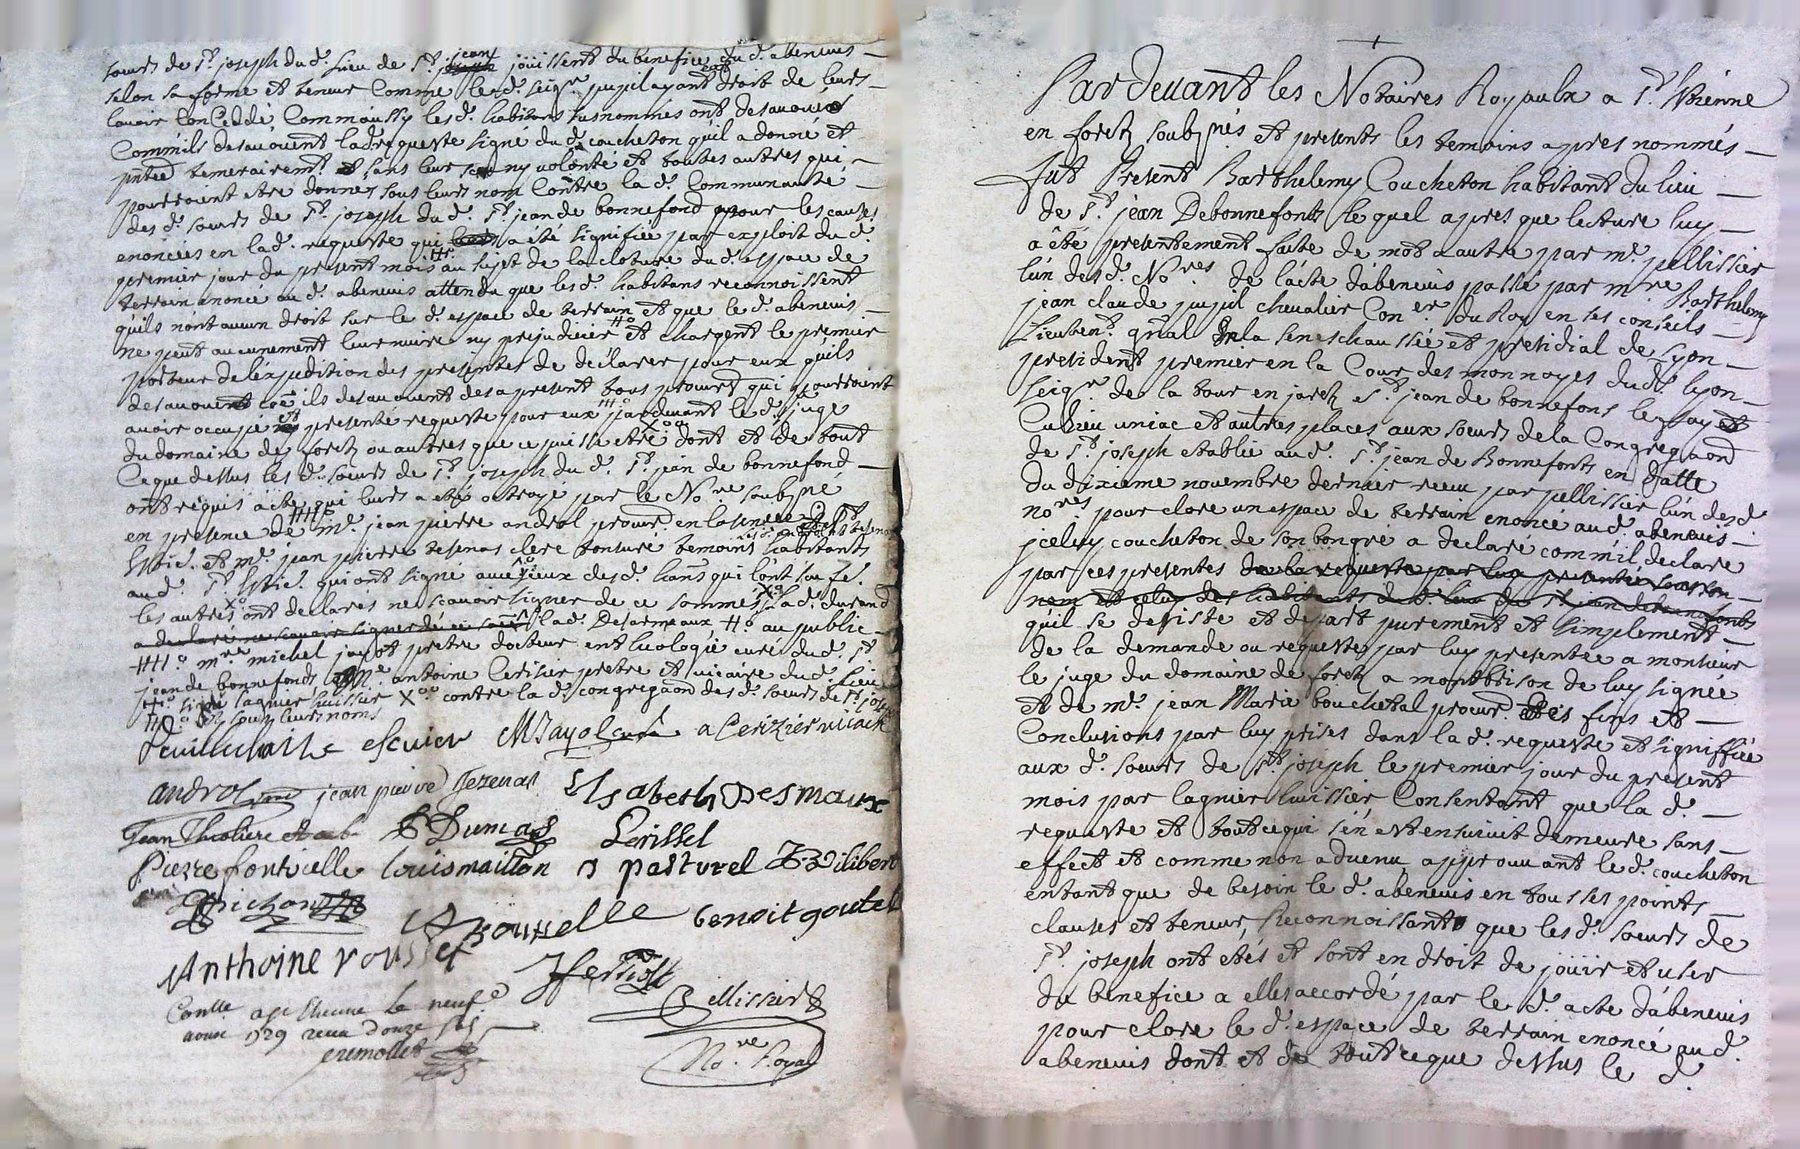 Par Devant les Notaires Royaulx a St. Etienne
en foretz soubnés et presents les temoins apres nommés
fut Present Barthelemy Coucheton habitant du lieu
de St. jean Debonnefonts lequel apres que lecture luy
a êté presentement faite de mot a autre par me. pellissier
lún desd. Nores de lacte dábenevis passé par mre Barthelemy
jean claude pupil chevalier Coner du Roy en ses conseils
Lieutent. gnal de la seneschaussée et presidial de Lyon
president premier en la Cour des monnoyes dud. lyon
seigr. de la tour en jaretz St. jean de bonnefons le fay et
Cubieu uniac et autres places aux sœurs dela Congregaond
de St. joseph etablie aud. St. jean de Bonnefonts en datte
du dixieme novembre dernier receu par pellissier lún desd.
nores pour clore un espace de terrain enoncé aud. abenevis
jceluy coucheton de son bon gré a declaré comme il declare
par ces presentes de la requeste par luy presentée sous son
nom et celuy des habitants du d. lieu de St. jean de bonnefonts
quil se desiste et depart purement et simplement
de la demande ou requeste par luy presentée a monsieur
le juge du domaine de foretz a montbrison de luy signée
et de me. jean Marie bouchetal procur. Des fins et
Conclusions par luy prises dans la d. requeste et signiffiée
aux d. sœurs de St. joseph le premier jour du present
mois par lagnier huissier, Consentant que la d.
requeste et tout cequi s'en est ensuivit demeure sans
effect et comme non advenu approuvant le d. coucheton
entant que de besoin le d. abenevis en tous ses points
clauses et teneur, Reconnoissant que les d. sœurs de
St. joseph ont etés et sont en droit de joüir et user
du benefice a elles accordé par le d. acte dábenevis
pour clore le d. espace de terrain enoncé au d.
abenevis dont et de tout ceque dessus le d.
sœurs de St. joseph du d. lieu de St. jean joüissent du benefice dud. abenevis
selon sa forme et teneur Comme le d. seigr. pupil ayant droit de leurs
lavoir Conceddé, Comm'aussy les d. habitans susnommés ont desavoué
Comm'ils desavouent lad. requeste signé dud. coucheton qúil a donné et
temerairemt. et sans leur sceu ny volonté et toutes autres qui
pourroient etre données sous leurs nom Contre la d. Communauté
des d. sœurs de St. joseph du d. St. jean de bonnefond pour les causes
enoncées en la d. requeste qui a été signifiée par exploit du d.
premier jour du present mois au sujet de la cloture du d. espace de
terrain enoncé au d. abenevis attendu que les d. habitans reconnoissent
qúils nónt aucun droit sur le d. espace de terrain et que le d. abenevis
ne peut aucunement leur nuire ny prejudicier et chargent le premier
porteur de léxpedition des presentes de declarer pour eux qúils
desavouent ils desavouent des a present tous procurs. qui pourroient
avoir occupé et presenté requeste pour eux pardevant le d. s. juge
du domaine de foretz ou autres que ce puisse etre dont et de tout
Ceque dessus les d. sœurs de St. joseph du d. St. jean de bonnefond
ont requis acte qui leurs a eté octroyé par le Nore soubné
en presence de me. jean pierre androl procur. en la
et me. jean pierre tezenas clerc tonsuré temoins habitants
au d. St. Etie. qui ont signé avec ceux des d. hans qui lónt sceu fe.
les autres ont declarés ne scavoir signer de ce sommés la d. durand
a declaré ne scavoir signer de ce la d. Desarmeaux au public
mre michel jayot pretre docteur en theologie curé du d. St
jean de bonnefonds me antoine Cerisier pretre et vicaire du d. lieu
signé lagnier huissier contre la d. congregaond des d. sœurs de St. joseph
sous leurs noms
escuier MJayol curé a Cerizier vicaire
androl jean pierre Tezenas Elsabeth Desmaux
Jean Thioliere Dumas Perissel
Pierre fontvielle Louis maillon pasturel Gilibert
Pichon Rouselle benoit goutel
Anthoine rousset
Pellissier
Nore. Royal
Conlle a St Etienne le neufe
1729 receu douze sols